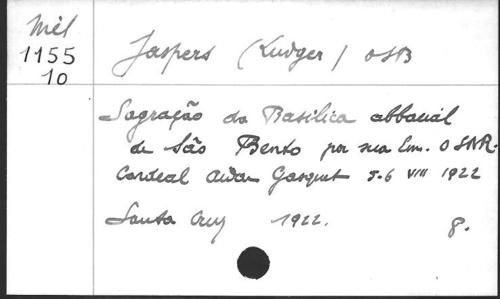 Mél
1155
10
Jaspers (Ludger) OSB
Sagração da Basilica abbacial
de São Bento por sua Em. O SNR.
Cardeal Aidan Gasquet 5-6 VIII 1922
Santa Cruz 1922. 8.